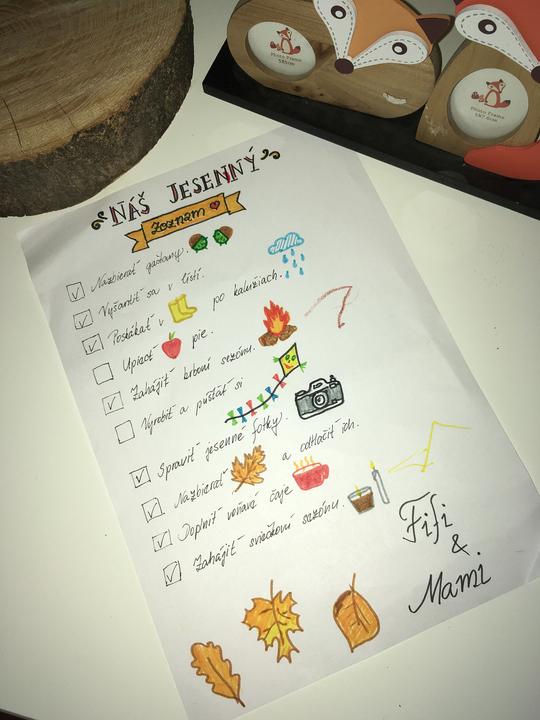 NÁŠ JESENNÝ
Zoznam
Nazbierať gaštany.
Vyšantiť sa v lístí.
Poskákať v po kalužiach.
Upiecť pie.
Zahájiť krbovú sezónu.
Vyrobiť a púšťať si
Spraviť jesenné fotky.
Nazbierať a odtlačiť ich.
Doplniť voňavé čaje
Zahájiť sviečkovú sezónu.
Fifi
&
Mami
Photo Frame
Photo Frame